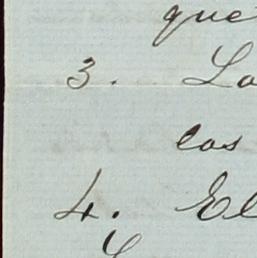 que
3. La
las
4. El
y